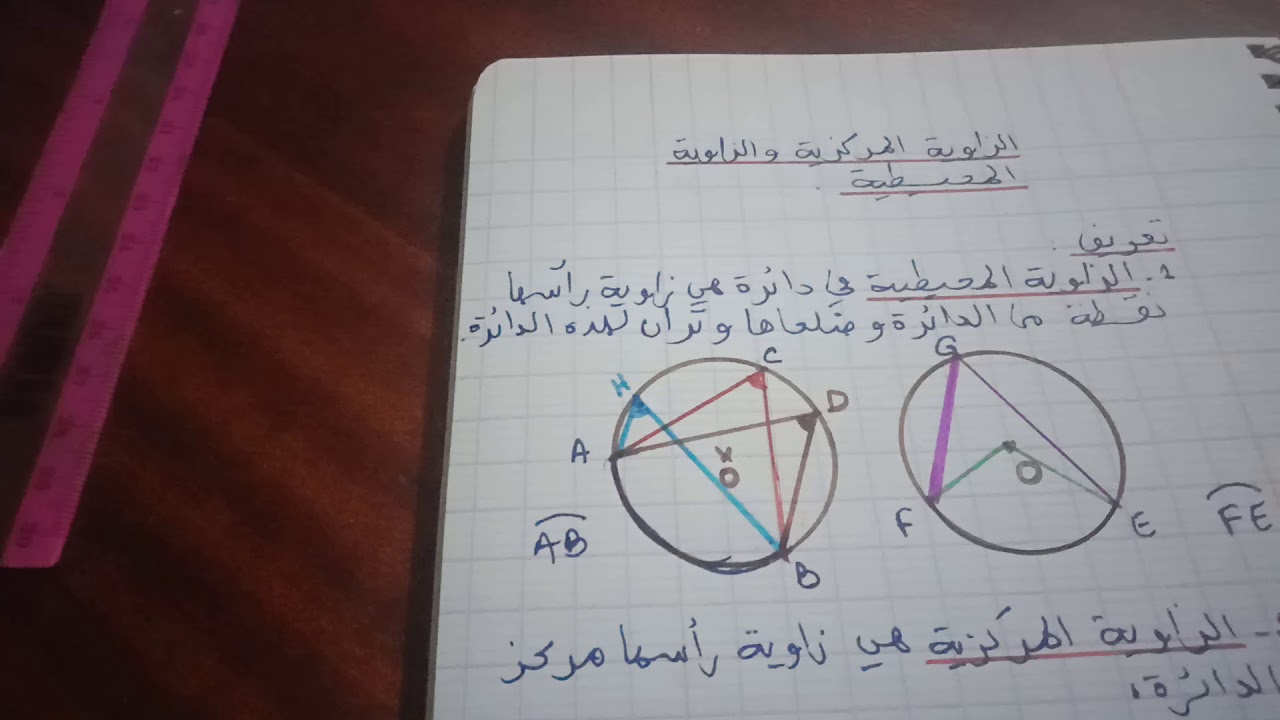 الزاوية المركزية والزاوية
المحيطية.
تعريف:
1. الزاوية المحيطية في دائرة هي زاوية رأسها
نقطة من الدائرة وضلعاها وتران لهذه الدائرة.
H C D A O B
AB
G F O E
FE
- الزاوية المركزية هي زاوية رأسها مركز
الدائرة.